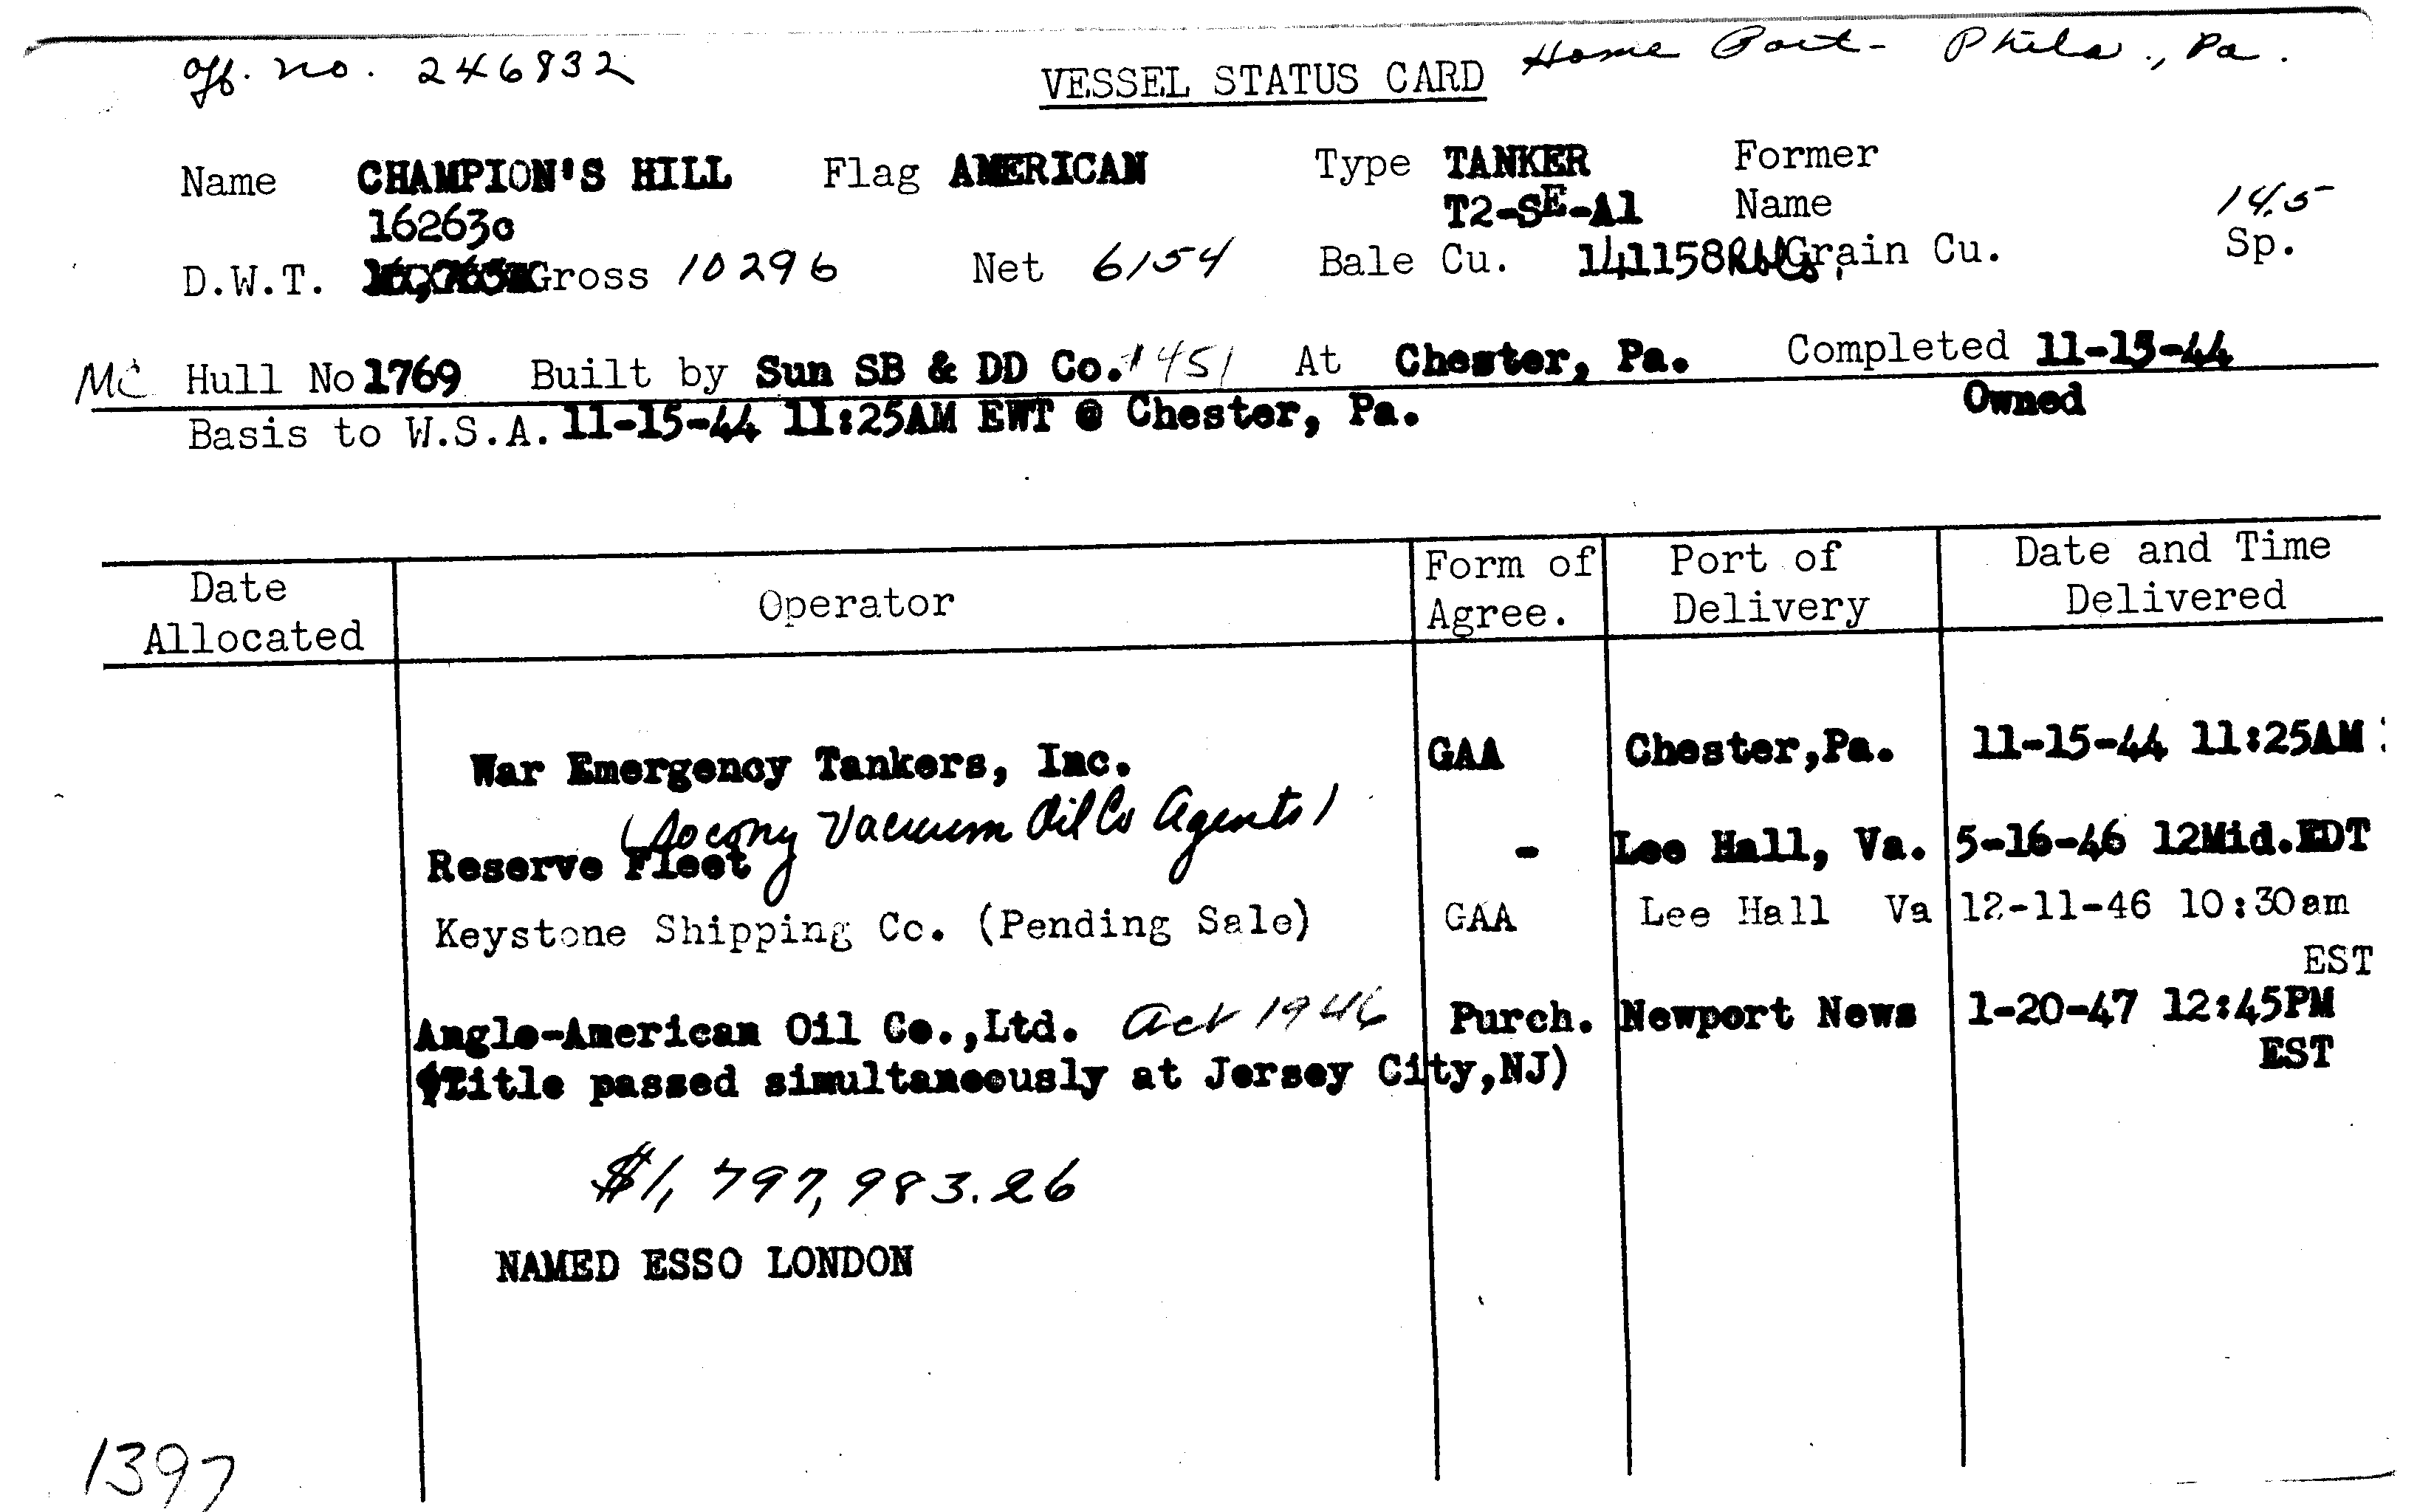 Off. no. 246832 VESSEL STATUS CARD Home Port- Phila., Pa.
Name CHAMPION'S HILL Flag AMERICAN Type TANKER Former
16263o T2-SE-A1 Name 14.5
D.W.T. Gross 10296 Net 6154 Bale Cu. 141158 Grain Cu. Sp.
MC Hull No 1769 Built by Sun SB & DD Co. #451 At Chester, Pa. Completed 11-15-44
Basis to W.S.A. 11-15-44 11:25AM EWT @ Chester, Pa. Owned
Date Allocated Operator Form of Agree. Port of Delivery Date and Time Delivered
War Emergency Tankers, Inc. GAA Chester,Pa. 11-15-44 11:25AM
(Socony Vacuum Oil Co Agents)
Reserve Fleet - Lee Hall, Va. 5-16-46 12Mid.EDT
Keystone Shipping Co. (Pending Sale) GAA Lee Hall Va 12-11-46 10:30am
EST
Anglo-American Oil Co.,Ltd. Act 1946 Purch. Newport News 1-20-47 12:45PM
(Title passed simultaneously at Jersey City,NJ) EST
$1,797,983.26
NAMED ESSO LONDON
1397